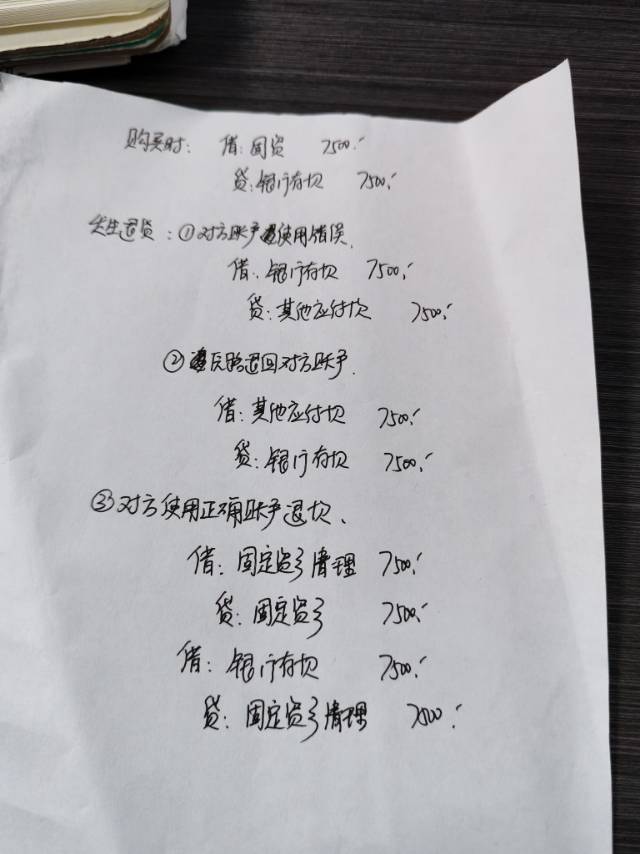 购买时: 借:固资 7500.-
贷:银行存款 7500.-
发生退货:①对方账户使用错误.
借:银行存款 7500.-
贷:其他应付款 7500.-
②原路退回对方账户.
借:其他应付款 7500.-
贷:银行存款 7500.-
③对方使用正确账户退款、
借:固定资产清理 7500.-
贷:固定资产 7500.-
借:银行存款 7500.-
贷:固定资产清理 7500.-